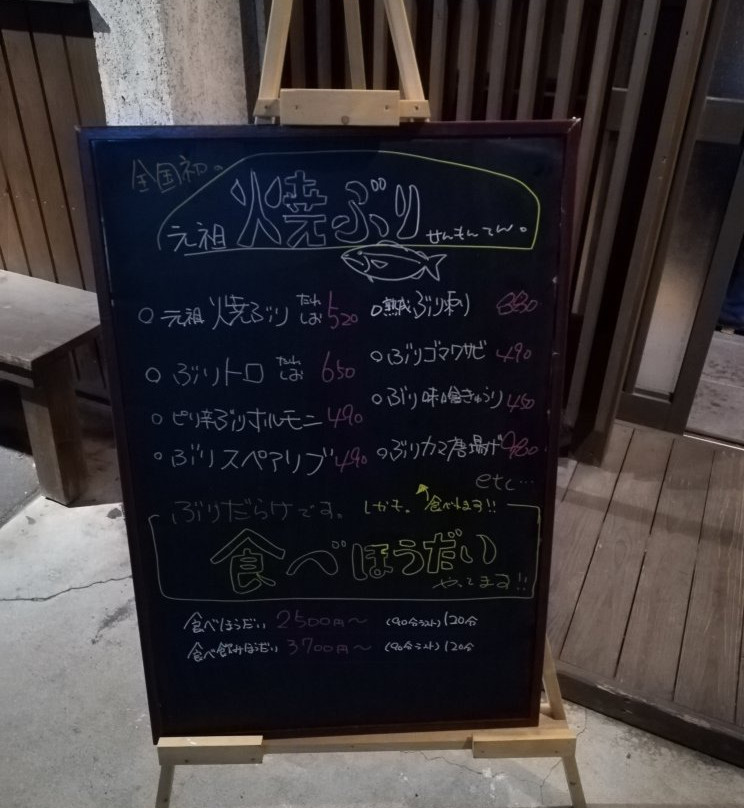 全国初の
元祖 焼ぶり せんもんてん。
○ 元祖 焼ぶり たれ しお 520
○ ぶりトロ たれ しお 650
○ ピリ辛ぶりホルモニ 490
○ ぶりスペアリブ 490
○ 熟成ぶり刺り 880
○ ぶりゴマワサビ 490
○ ぶり味噌きゅうり 450
○ ぶりカマ唐揚げ 980
etc…
ぶりだらけです。 しかも。 食べれます!!
食べほうだい
やってます!!
食べほうだい 2500円〜 (90分ラスト) 120分
食べ飲みほうだい 3700円〜 (90分ラスト) 120分